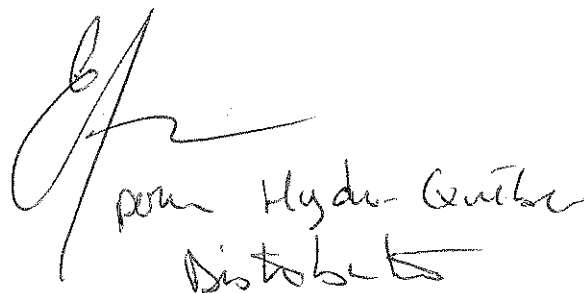 pour Hydro-Québec
Distribution